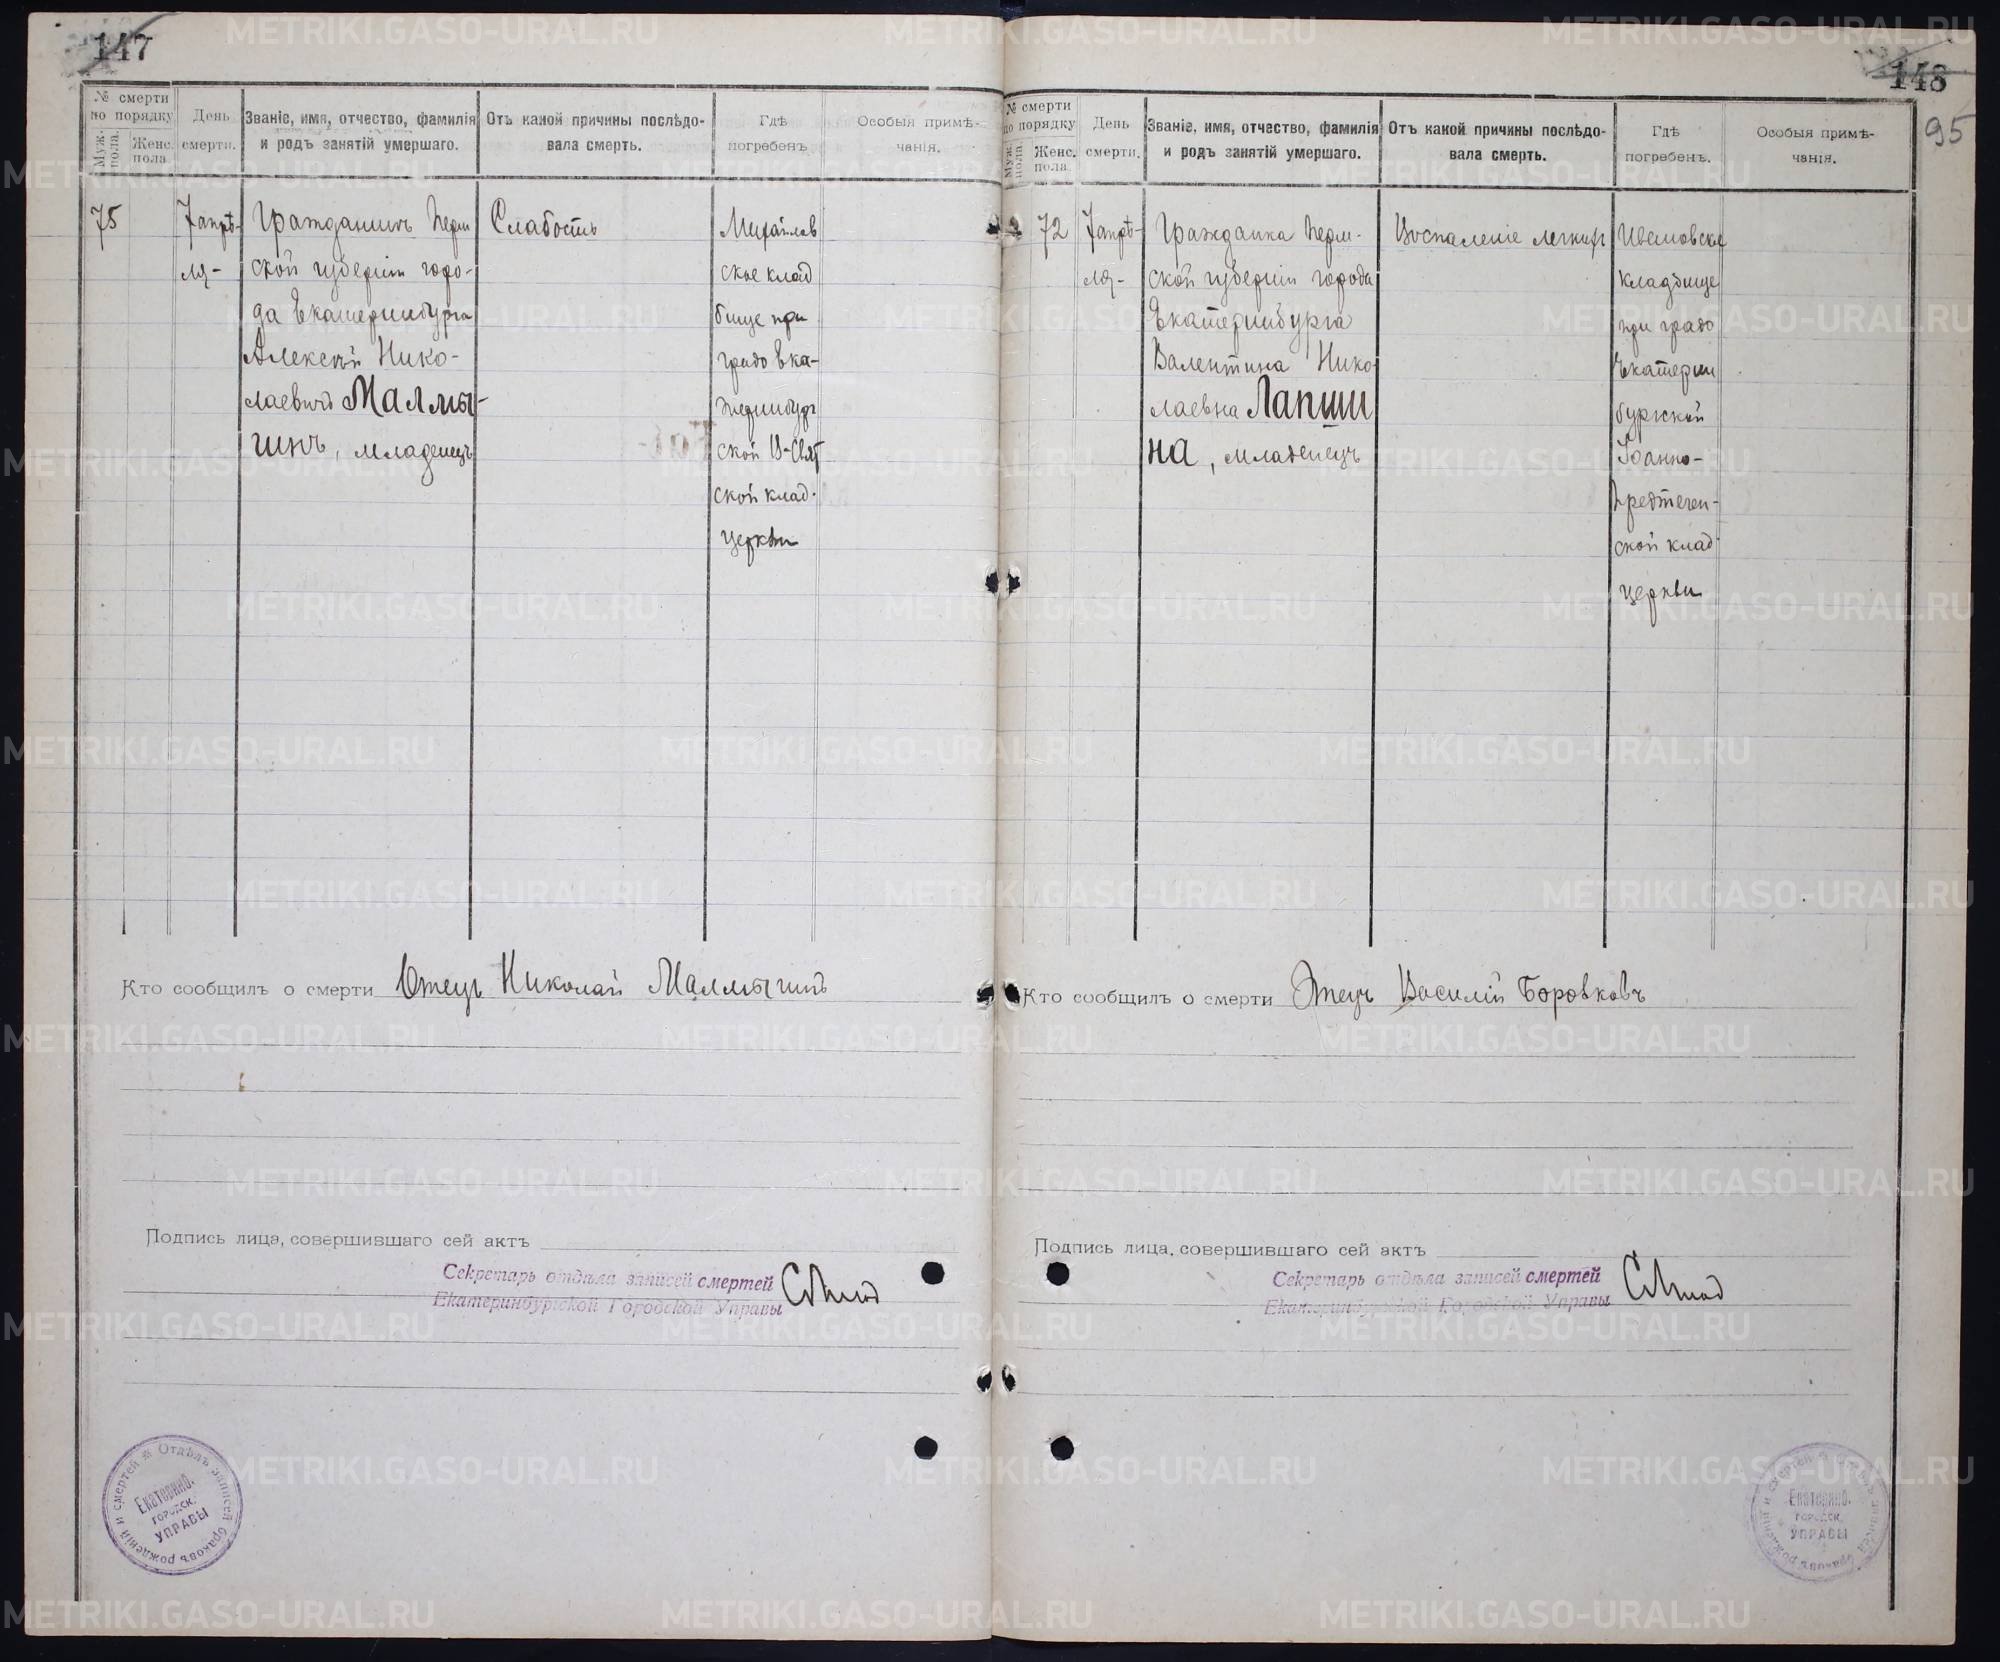 147
№ смерти
по порядку
Муж.
пола.
Женс.
пола.
День
смерти.
Званіе, имя, отчество, фамилія
и родъ занятій умершаго.
Отъ какой причины послѣдо-
вала смерть.
Гдѣ
погребенъ.
Особыя примѣ-
чанія.
75
7 апрѣ-
ля-
Гражданинъ Перм
ской губерніи горо-
да Екатеринбурга
Алексѣй Нико-
лаевичъ Маллы-
гинъ, младенецъ
Слабость
Михайлов
ское клад
бище при
градо Ека-
теринбург
ской В-Свят
ской клад.
церкви
Кто сообщилъ о смерти Отецъ Николай Маллыгинъ
Подпись лица, совершившаго сей актъ
Секретарь отдѣла записей смертей
Екатеринбургской Городской Управы
Отдѣлъ записей браковъ рожденій и смертей
Екатерино.
городск.
УПРАВЫ
148
95
№ смерти
по порядку
Муж.
пола.
Женс.
пола.
День
смерти.
Званіе, имя, отчество, фамилія
и родъ занятій умершаго.
Отъ какой причины послѣдо-
вала смерть.
Гдѣ
погребенъ.
Особыя примѣ-
чанія.
72
7 апрѣ-
ля-
Гражданка Перм-
ской губерніи города
Екатеринбурга
Валентина Нико-
лаевна Лапши
на, младенецъ
Воспаленіе легкихъ
Ивановское
кладбище
при градо
Екатерин
бургской
Іоанно-
Предтечен-
ской клад.
церкви
Кто сообщилъ о смерти Отецъ Василій Боровковъ
Подпись лица, совершившаго сей актъ
Секретарь отдѣла записей смертей
Екатеринбургской Городской Управы
Отдѣлъ записей браковъ рожденій и смертей
Екатерино.
городск.
УПРАВЫ
METRIKI.GASO-URAL.RU